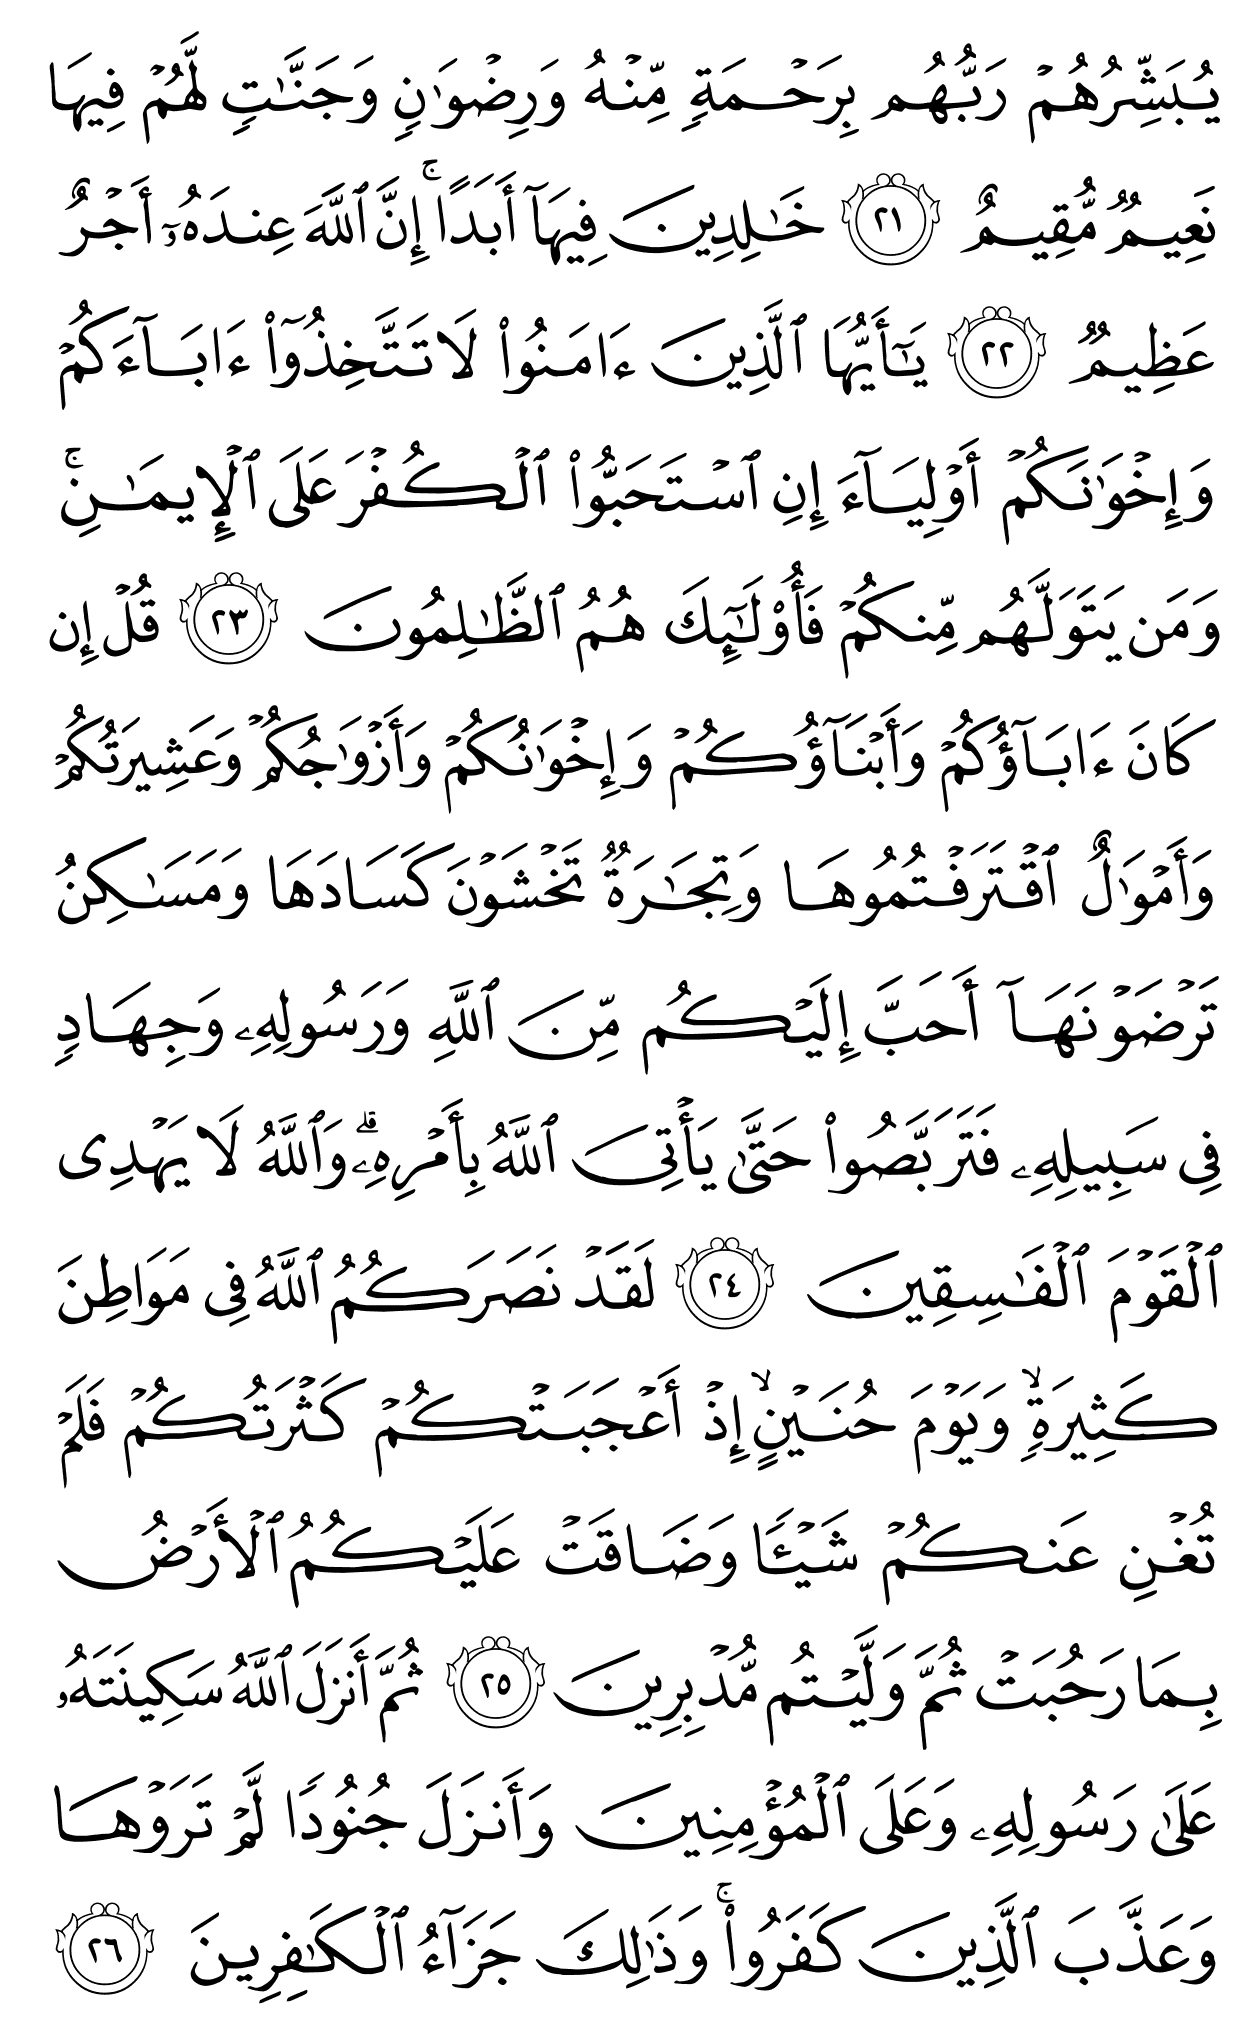 يُبَشِّرُهُمۡ رَبُّهُم بِرَحۡمَةٖ مِّنۡهُ وَرِضۡوَٰنٖ وَجَنَّٰتٖ لَّهُمۡ فِيهَا
نَعِيمٞ مُّقِيمٌ ٢١ خَٰلِدِينَ فِيهَآ أَبَدًاۚ إِنَّ ٱللَّهَ عِندَهُۥٓ أَجۡرٌ
عَظِيمٞ ٢٢ يَٰٓأَيُّهَا ٱلَّذِينَ ءَامَنُواْ لَا تَتَّخِذُوٓاْ ءَابَآءَكُمۡ
وَإِخۡوَٰنَكُمۡ أَوۡلِيَآءَ إِنِ ٱسۡتَحَبُّواْ ٱلۡكُفۡرَ عَلَى ٱلۡإِيمَٰنِۚ
وَمَن يَتَوَلَّهُم مِّنكُمۡ فَأُوْلَٰٓئِكَ هُمُ ٱلظَّٰلِمُونَ ٢٣ قُلۡ إِن
كَانَ ءَابَآؤُكُمۡ وَأَبۡنَآؤُكُمۡ وَإِخۡوَٰنُكُمۡ وَأَزۡوَٰجُكُمۡ وَعَشِيرَتُكُمۡ
وَأَمۡوَٰلٌ ٱقۡتَرَفۡتُمُوهَا وَتِجَٰرَةٞ تَخۡشَوۡنَ كَسَادَهَا وَمَسَٰكِنُ
تَرۡضَوۡنَهَآ أَحَبَّ إِلَيۡكُم مِّنَ ٱللَّهِ وَرَسُولِهِۦ وَجِهَادٖ
فِي سَبِيلِهِۦ فَتَرَبَّصُواْ حَتَّىٰ يَأۡتِيَ ٱللَّهُ بِأَمۡرِهِۦۗ وَٱللَّهُ لَا يَهۡدِي
ٱلۡقَوۡمَ ٱلۡفَٰسِقِينَ ٢٤ لَقَدۡ نَصَرَكُمُ ٱللَّهُ فِي مَوَاطِنَ
كَثِيرَةٖ وَيَوۡمَ حُنَيۡنٍ إِذۡ أَعۡجَبَتۡكُمۡ كَثۡرَتُكُمۡ فَلَمۡ
تُغۡنِ عَنكُمۡ شَيۡـٔٗا وَضَاقَتۡ عَلَيۡكُمُ ٱلۡأَرۡضُ
بِمَا رَحُبَتۡ ثُمَّ وَلَّيۡتُم مُّدۡبِرِينَ ٢٥ ثُمَّ أَنزَلَ ٱللَّهُ سَكِينَتَهُۥ
عَلَىٰ رَسُولِهِۦ وَعَلَى ٱلۡمُؤۡمِنِينَ وَأَنزَلَ جُنُودٗا لَّمۡ تَرَوۡهَا
وَعَذَّبَ ٱلَّذِينَ كَفَرُواْۚ وَذَٰلِكَ جَزَآءُ ٱلۡكَٰفِرِينَ ٢٦